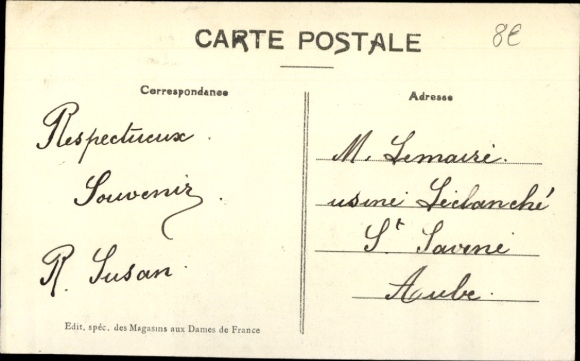 CARTE POSTALE
8€
Correspondance
Adresse
Respectueux
Souvenir.
R. Susan.
M. Lemaire.
usine Léclanché
St Savine
Aube.
Edit. spéc. des Magasins aux Dames de France